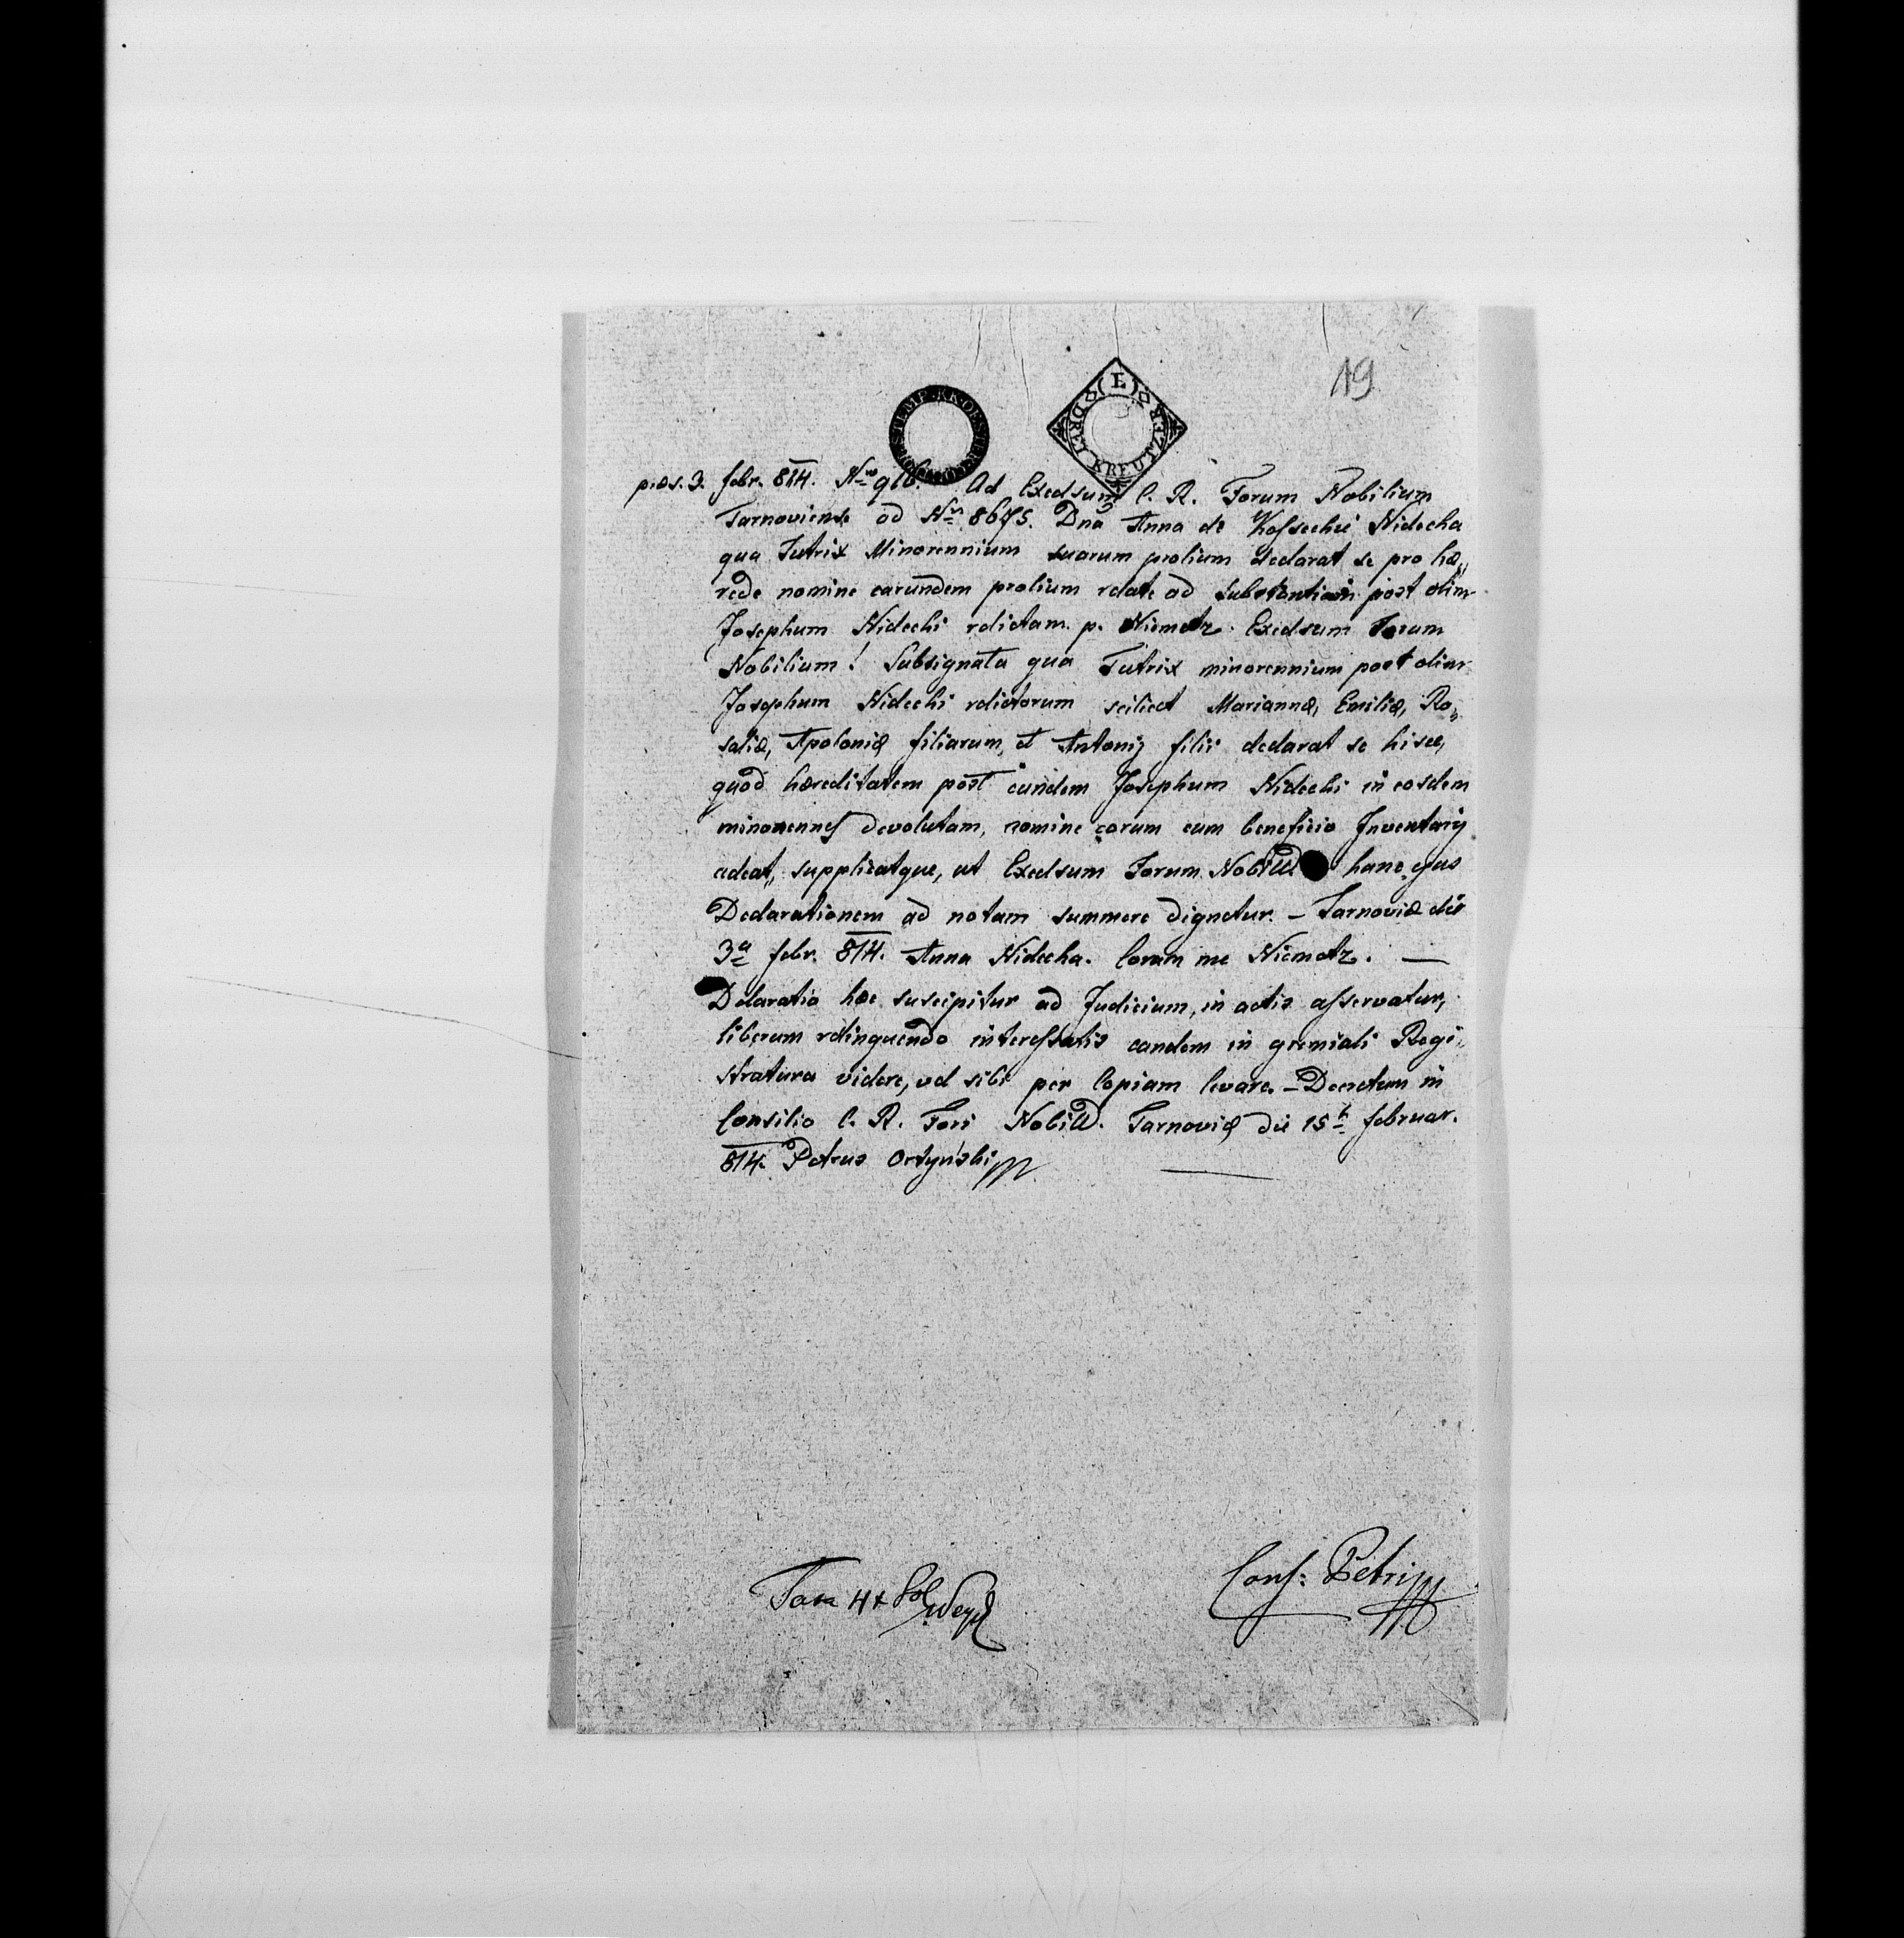 19
STEMP. KK. OESTERR.
(E) DREY KREUTZER
præs. 3. febr. 814. Nro 916. Ad Excelsum C. R. Forum Nobilium
Tarnoviense ad Nrm 8675. Dna Anna de Kossechie Nidecka
qua Tutrix Minorennium suarum prolium declarat se pro hæ„
rede nomine earundem prolium relate ad substantiam post olim
Josephum Nidecki relictam. p. Niemetz. Excelsum Forum
Nobilium! Subsignata qua Tutrix minorennium post olim
Josephum Nidecki relictorum scilicet Mariannæ, Emiliæ, Ro„
saliæ, Apoloniæ filiarum, et Antonij filii declarat se hisce,
quod hæreditatem post eundem Josephum Nidecki in eosdem
minorennes devolutam, nomine eorum cum beneficio Inventarij
adeat, supplicatque, ut Excelsum Forum Nobill hanc ejus
Declarationem ad notam summere dignetur. – Tarnoviæ die
3a febr. 814. Anna Nidecka. Coram me Niemetz. —
Delaratio hæc suscipitur ad Judicium, in actis asservatur,
liberum relinquendo interessatis eandem in gremiali Regi„
stratura videre, vel sibi per Copiam levare. – Decretum in
Consilio C. R. Fori Nobill. Tarnoviæ die 15t februar.
814. Petrus Ortyński
Taxa 4 x
Cons: Petri